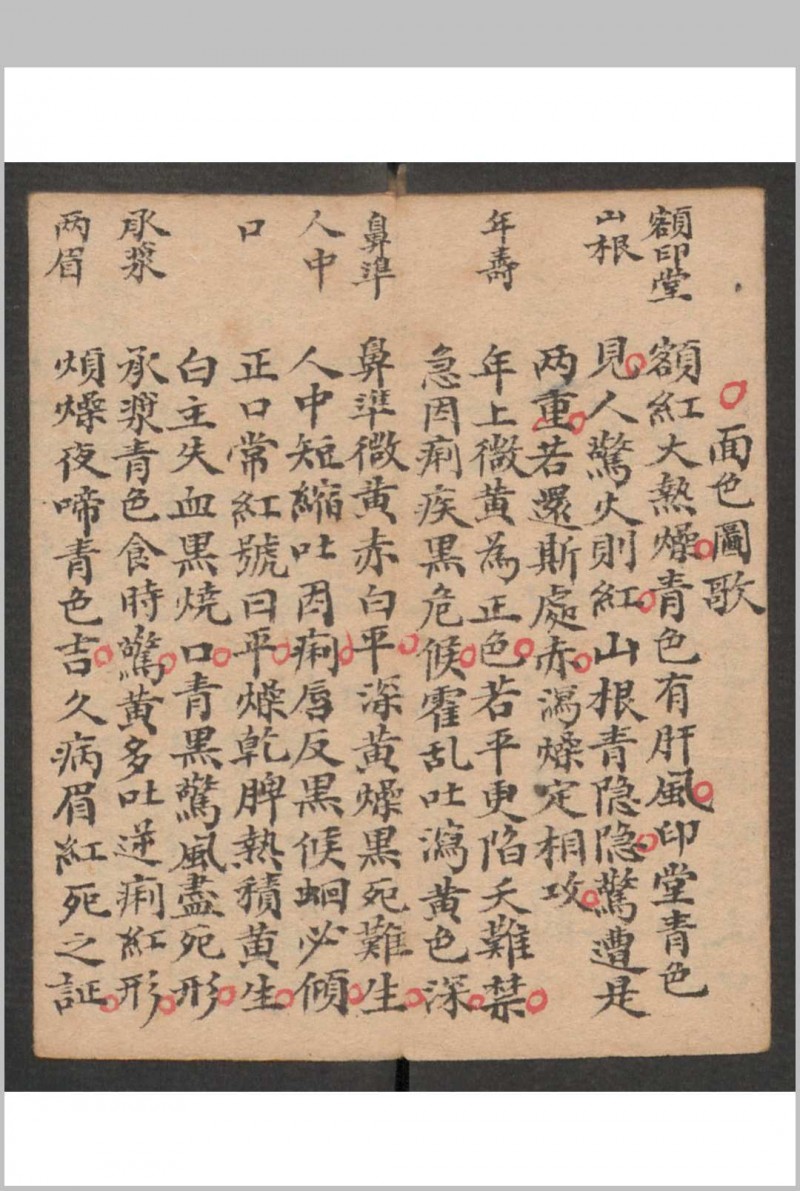 面色圖歌
額印堂
額紅大熱燥青色有肝風印堂青色
山根
見人驚火則紅山根青隐隐驚遭是
两重若還斯處赤瀉燥定相攻
年壽
年上微黄為正色若平更陷夭難禁
急因痢疾黒危候霍乱吐瀉黄色深
鼻準
鼻準微黄赤白平深黄燥黒死難生
人中
人中短縮吐因痢唇反黒候蛔必傾
口
正口常紅號曰平燥乾脾熱積黄生
白主失血黒燒口青黒驚風盡死形
承漿
承漿青色食時驚黄多吐逆痢紅形
两眉
煩燥夜啼青色吉久病眉紅死之証